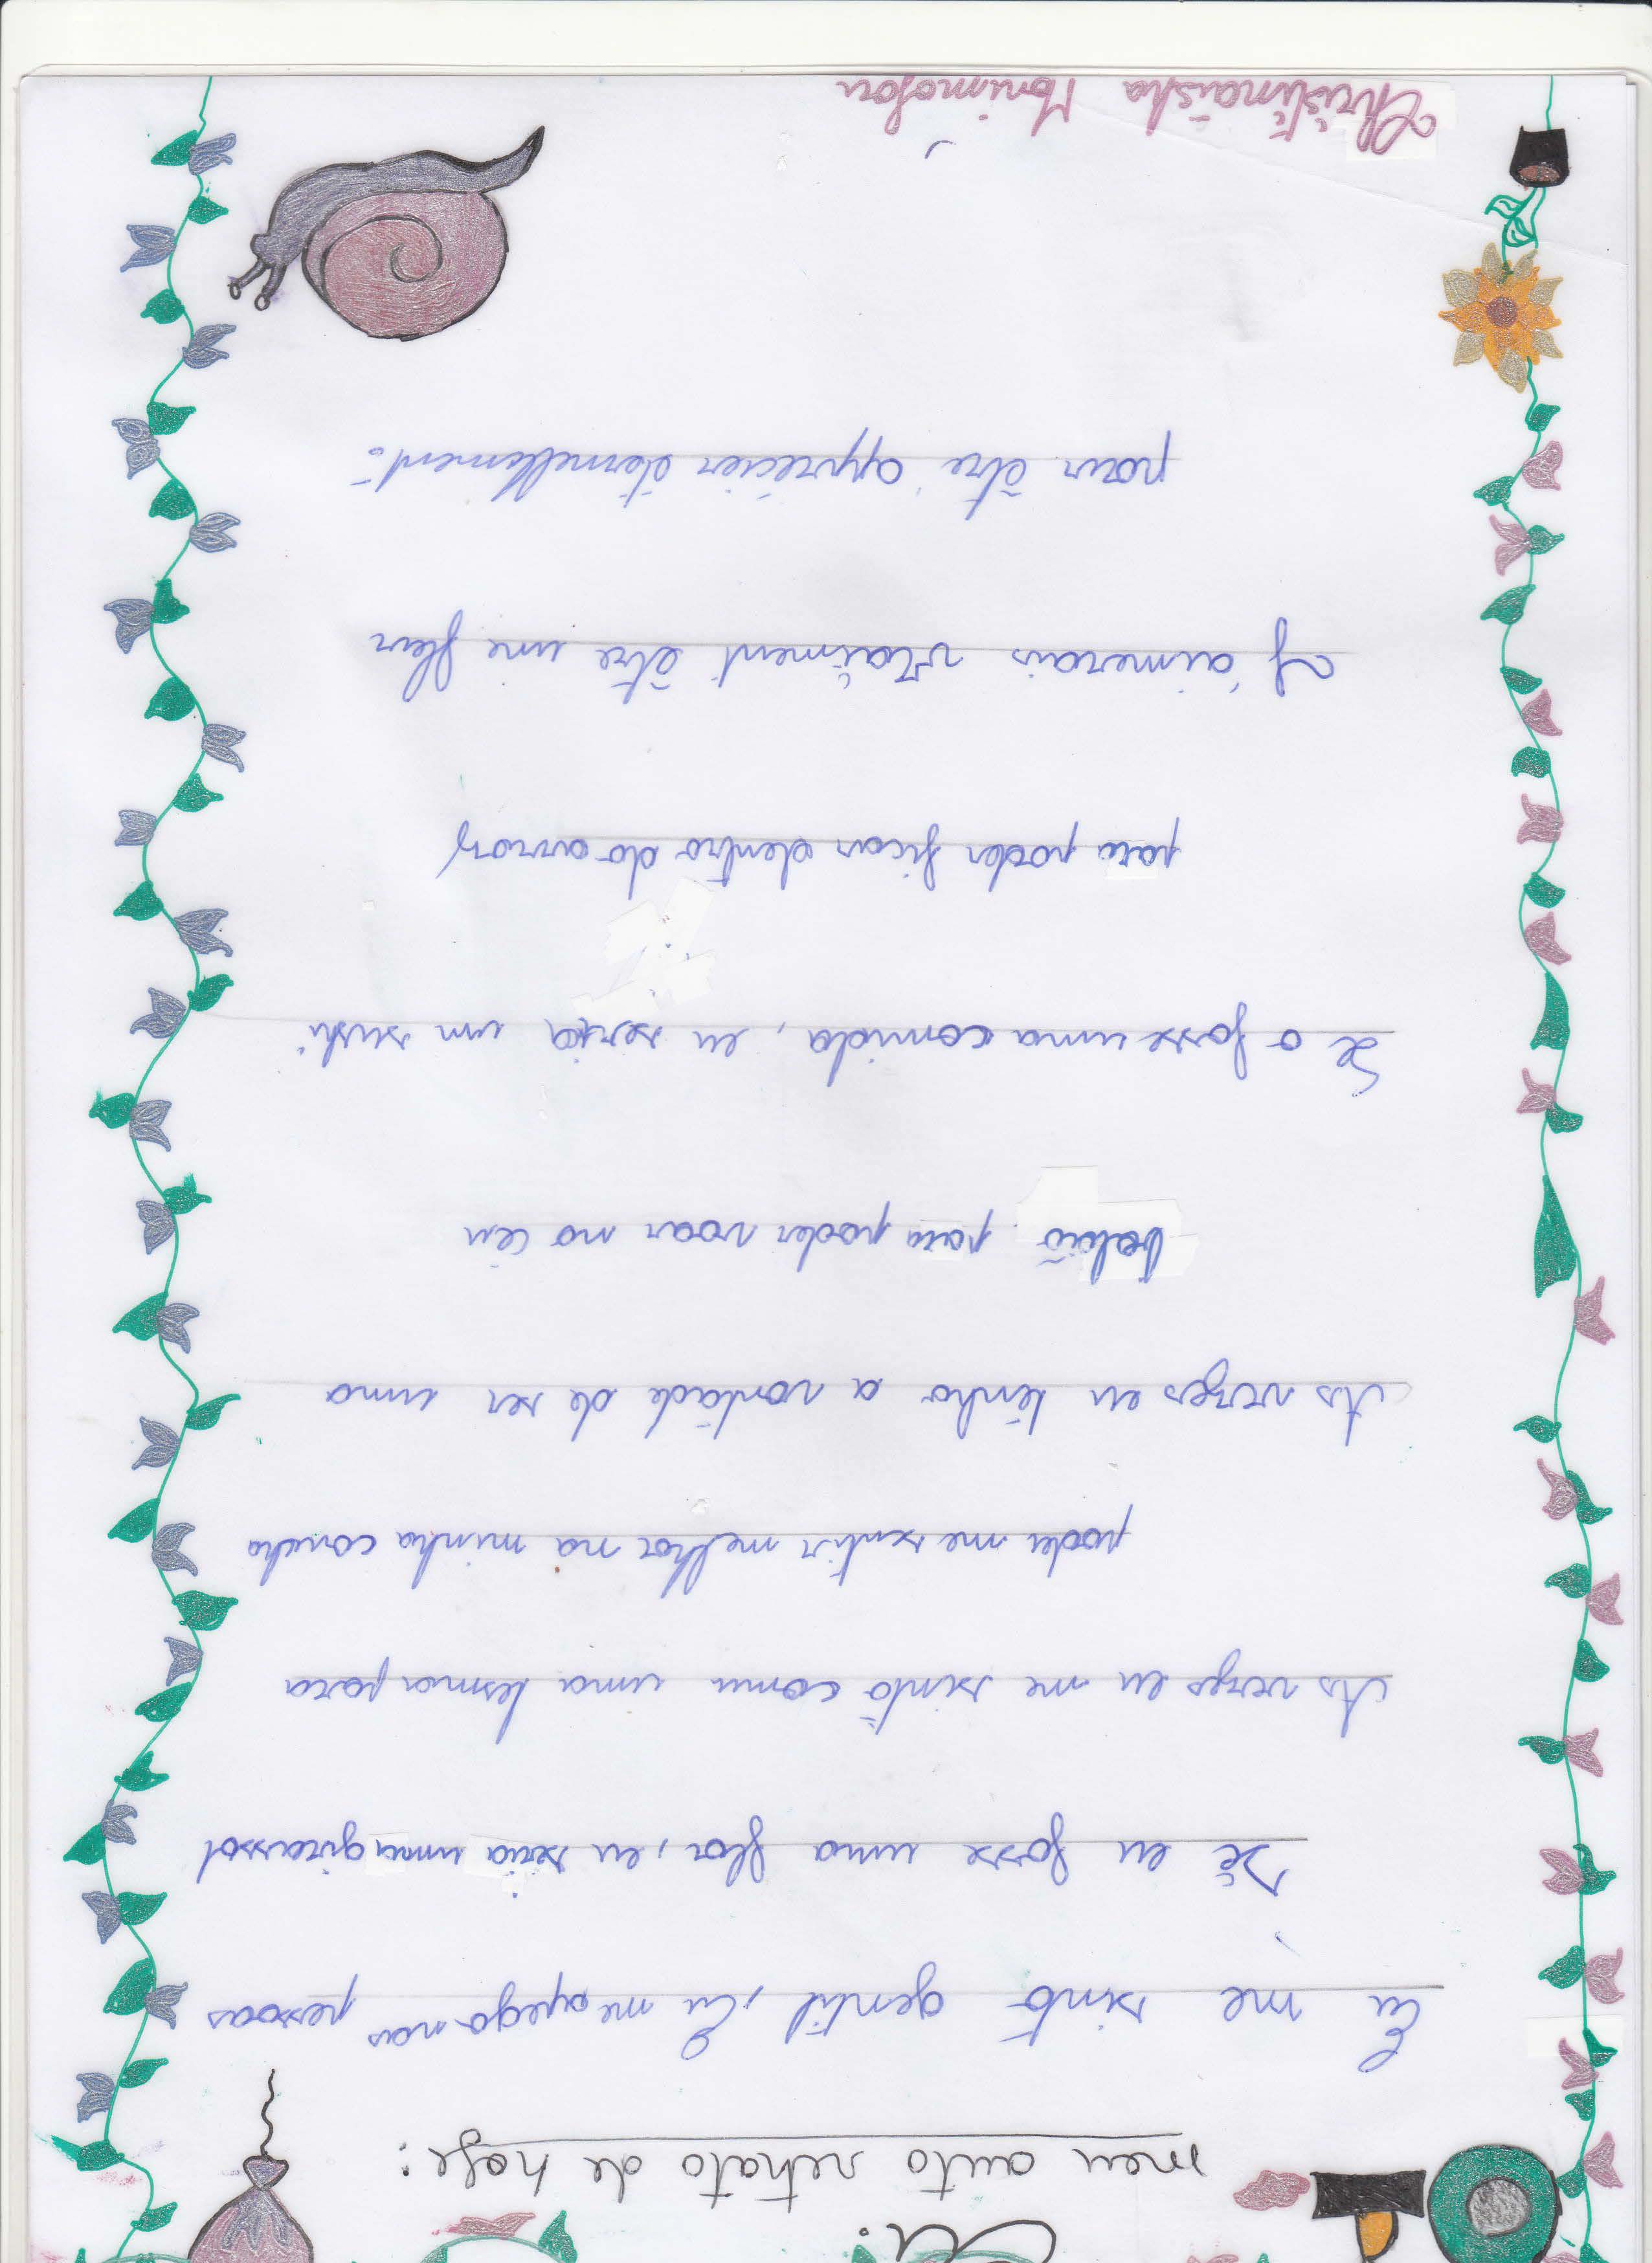 Eu:
meu auto retrato de hoje:
Eu me sinto gentil, Eu me apego nas pessoas
Sê eu fosse uma flor, eu seria uma girassol
As vezes eu me sinto comu uma lesma para
poder me sentir melhor na minha concha
As vezes eu tenho a vontade de ser uma
balão para poder voar no céu
Se o fosse uma comida, eu seria um sushi
para poder ficar dentro do arroz
J'aimerais vraiment être une fleur
pour être apprécier éternellement.
Christinaisha